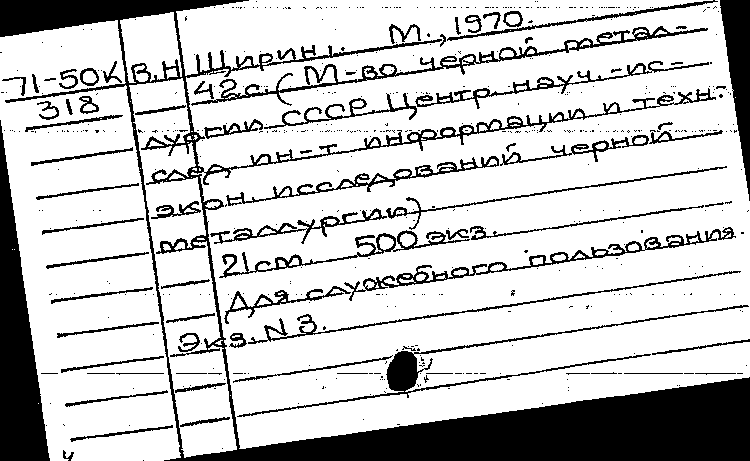 71-50К В.Н Щирин, . М., 1970.
318 42с. (М-во черной метал-
лургии СССР. Центр. науч.-ис-
след. ин-т информации и техн.-
экон. исследований черной
металлургии).
21см. 500 экз.
Для служебного пользования.
Экз. N 3.